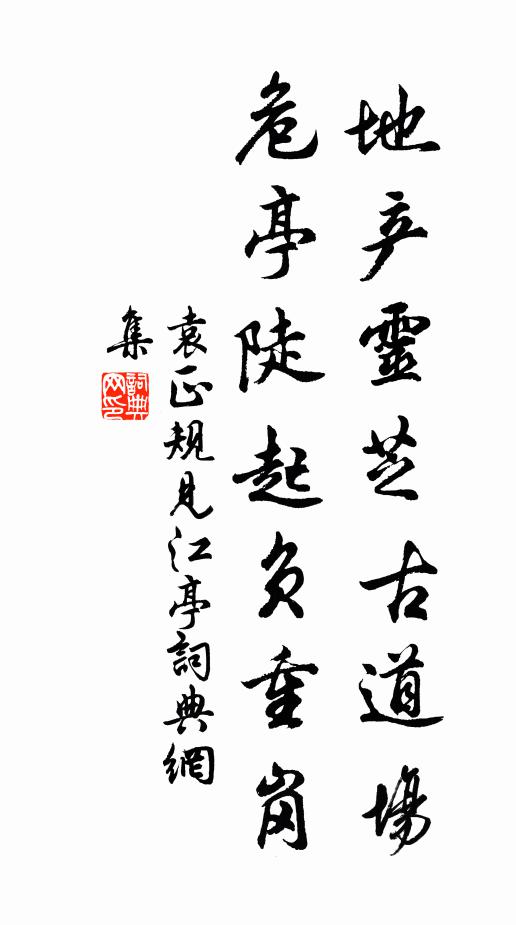 地产靈芝古道場
危亭陡起負重崗
袁正規見江亭詞典網
集
詞典网印